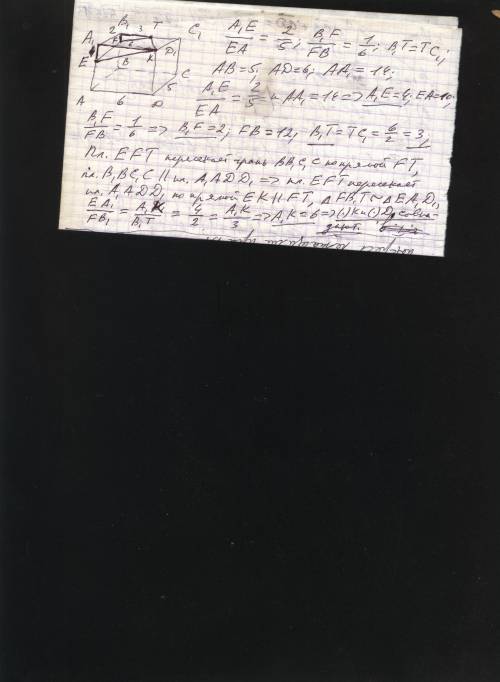 B₁ 3 T C₁
A₁ 2 F D₁
E B K C
A 6 D 5
A₁E/EA = 2/5; B₁F/FB = 1/6; B₁T=TC₁;
AB=5; AD=6; AA₁=14.
A₁E/EA = 2/5 и AA₁=14 => A₁E=4; EA=10;
B₁F/FB = 1/6 => B₁F=2; FB=12; B₁T=TC₁=6/2=3
Пл. EFT пересекает грань BB₁C₁C по прямой FT,
пл. B₁BC₁C || пл. A₁ADD₁ => пл. EFT пересекает
пл. A₁ADD₁ по прямой EK || FT, △FB₁T ~ △EA₁D₁
EA₁/FB₁ = A₁K/B₁T = 4/2 = A₁K/3 => A₁K=6 => (·)K и (·)D₁ совпа-
дают.